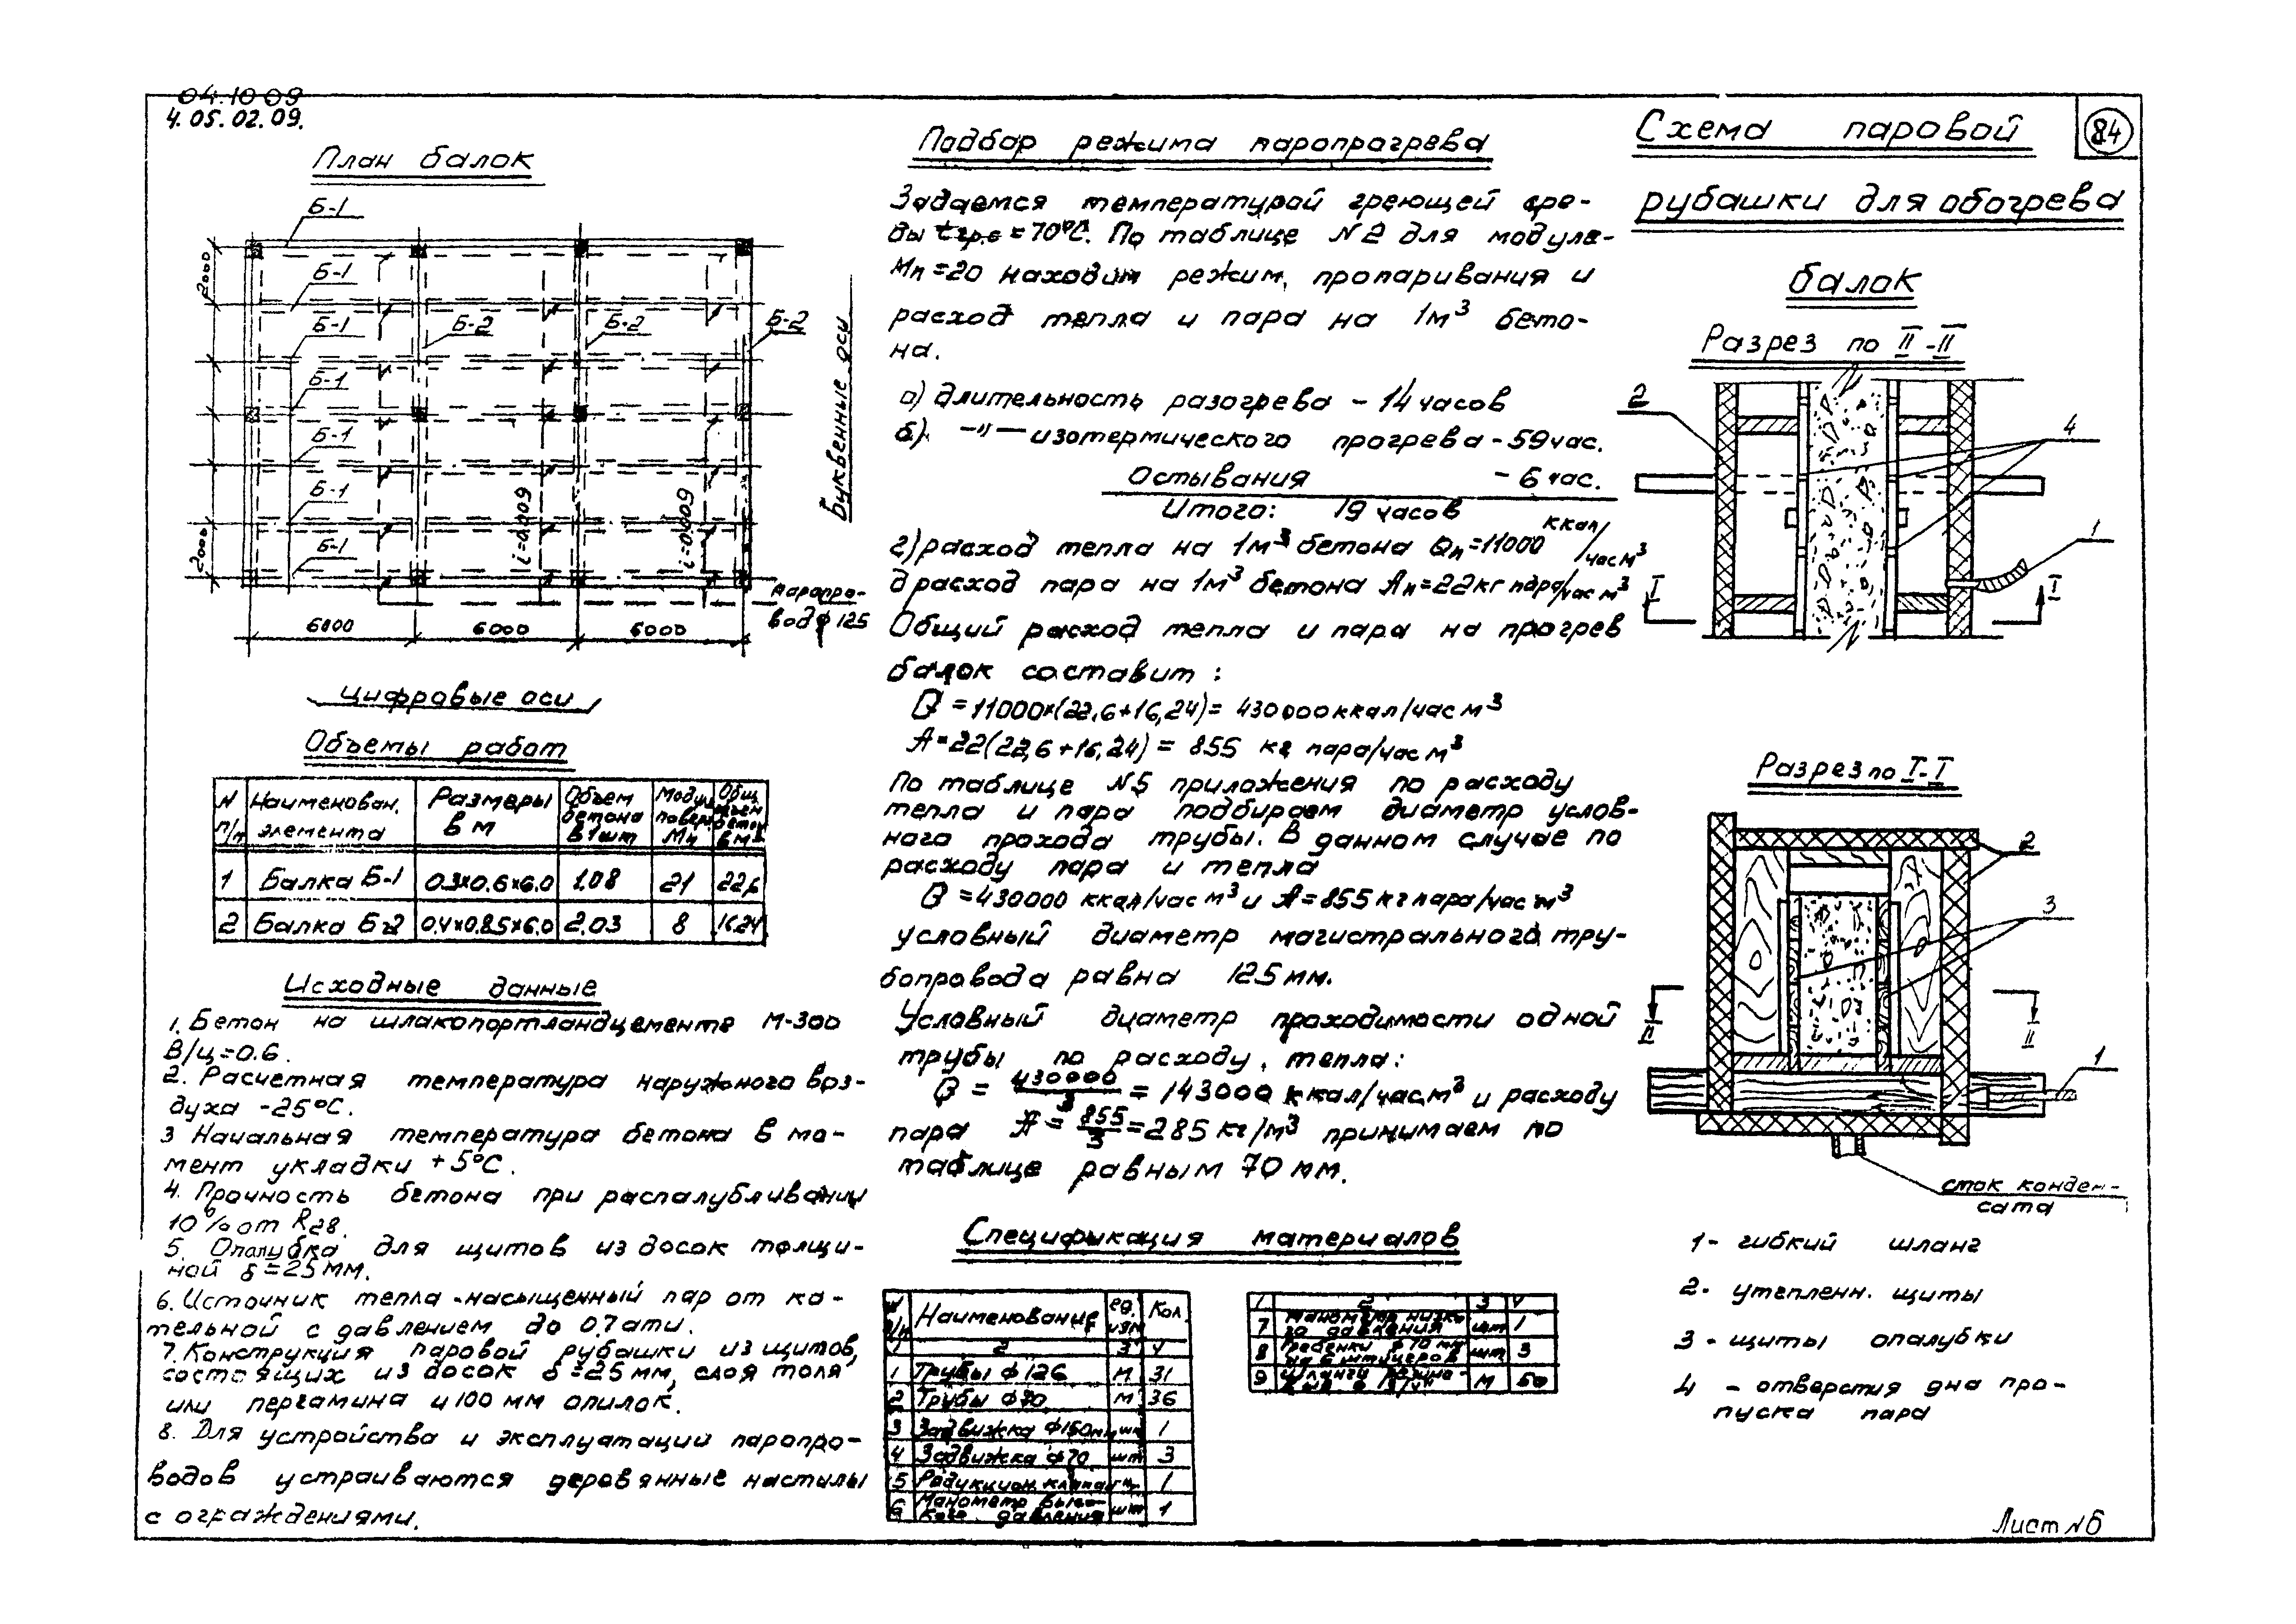 04.10 09
4. 05. 02. 09.
План балок
Б-1
Б-1
Б-1
Б-2
Б-2
Б-2
Б-1
Б-1
Б-1
Б-1
2000
2000
i=0.009
i=0.009
Буквенные оси
Паропро-
вод ф 125
6000
6000
6000
Цифровые оси
Объемы работ
N п/п
Наименован. элемента
Размеры в м
Объем бетона в 1 шт
Модул. поверх. Мп
Общ. объем бетон в м3
1 Балка Б-1 0.3x0.6x6.0 1.08 21 22,6
2 Балка Б-2 0.4x0.85x6.0 2.03 8 16.24
Исходные данные
1. Бетон на шлакопортландцементе М-300
В/ц=0.6.
2. Расчетная температура наружного воз-
духа -25°С.
3 Начальная температура бетона в мо-
мент укладки +5°С.
4. Прочность бетона при распалубливании
10% от R28.
5. Опалубка для щитов из досок толщи-
ной δ=25мм.
6. Источник тепла -насыщенный пар от ко-
тельной с давлением до 0.7 ати.
7. Конструкция паровой рубашки из щитов,
состоящих из досок δ=25 мм, слоя толя
или пергамина и 100 мм опилок.
8. Для устройства и эксплуатации паропро-
водов устраиваются деревянные настилы
с ограждениями.
Подбор режима паропрогрева
Задаемся температурой греющей сре-
ды tгр.с = 70°С. По таблице N2 для модуля-
Мп=20 находим режим, пропаривания и
расход тепла и пара на 1м3 бето-
на.
а) длительность разогрева - 14 часов
б) -"- изотермического прогрева - 59 час.
Остывания - 6 час.
Итого: 19 часов
г) расход тепла на 1м3 бетона Qп=11000 ккал/час м3
д расход пара на 1м3 бетона Ап=22кг пара/час м3
Общий расход тепла и пара на прогрев
балок составит:
Q = 11000x(22,6+16,24)= 430000ккал/час м3
А=22(22,6+16,24) = 855 кг пара/час м3
По таблице N5 приложения по расходу
тепла и пара подбираем диаметр услов-
ного прохода трубы. В данном случае по
расходу пара и тепла
Q =430000 ккал/час м3 и А=855 кг пара/час м3
условный диаметр магистрального тру-
бопровода равна 125 мм.
Условный диаметр проходимости одной
трубы по расходу, тепла:
Q = 430000/3 = 143000 ккал/час.м3 и расходу
пара А = 855/3 = 285 кг/м3 принимаем по
таблице равным 70 мм.
Спецификация материалов
N п/п Наименование ед. изм Кол.
1 2 3 4
1 Трубы ф 126 м 31
2 Трубы ф70 м 36
3 Задвижка ф150мм шт 1
4 Задвижка ф70 шт 3
5 Редукцион. клапан шт 1
6 Манометр высо-
кого давления шт 1
1 2 3 4
7 Манометр низко-
го давления шт 1
8 Гребенки ф70 мм
на 6 штуцеров шт 3
9 Шланги резино- м 50
Схема паровой
84
рубашки для обогрева
балок
Разрез по II-II
2
4
1
I
I
Разрез по I-I
2
3
II
II
1
сток конден-
сата
1- гибкий шланг
2- утепленн. щиты
3- щиты опалубки
4 - отверстия дна про-
пуска пара
Лист N6